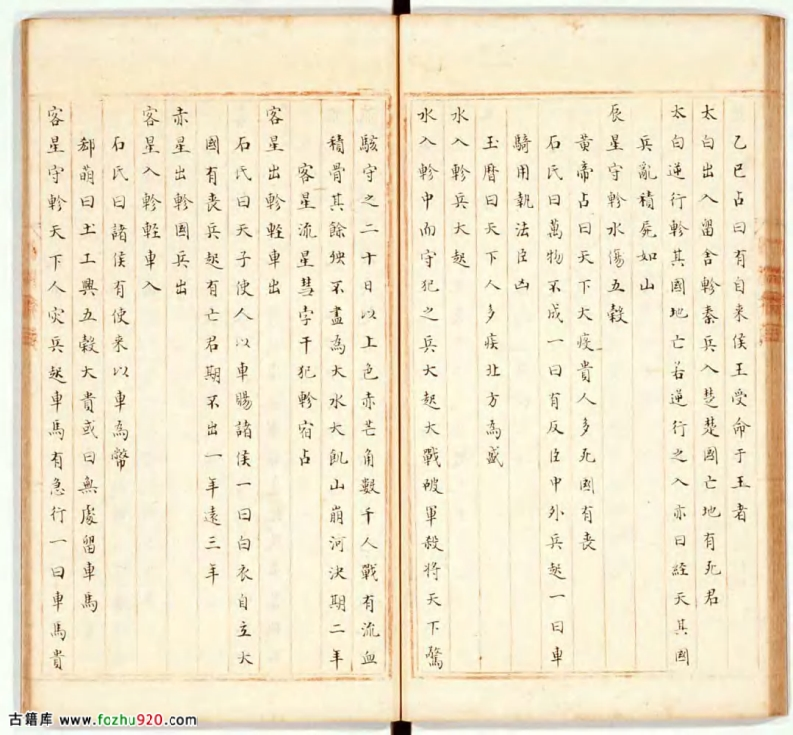 乙巳占曰有自来侯王受命于王者
太白出入留舍軫秦兵入楚楚國亡地有死君
太白逆行軫其國地亡若逆行之入亦曰經天其國
兵亂積屍如山
辰星守軫水傷五穀
黃帝占曰天下大疫貴人多死國有喪
石氏曰萬物不成一曰有反臣中外兵起一曰車
騎用執法臣凶
玉曆曰天下人多疾北方為盛
水入軫兵大起
水入軫中而守犯之兵大起大戰破軍殺將天下驚
駭守之二十日以上色赤芒角數千人戰有流血
積骨其餘殃不盡為大水大飢山崩河決期二年
客星流星彗孛干犯軫宿占
客星出軫輕車出
石氏曰天子使人以車賜諸侯一曰白衣自立大
國有喪兵起有亡君期不出一年遠三年
赤星出軫國兵出
客星入軫輕車入
石氏曰諸侯有使来以車為幣
郄萌曰土工興五穀大貴或曰無處留車馬
客星守軫天下人灾兵起車馬有急行一曰車馬貴
古籍库 www.fozhu920.com